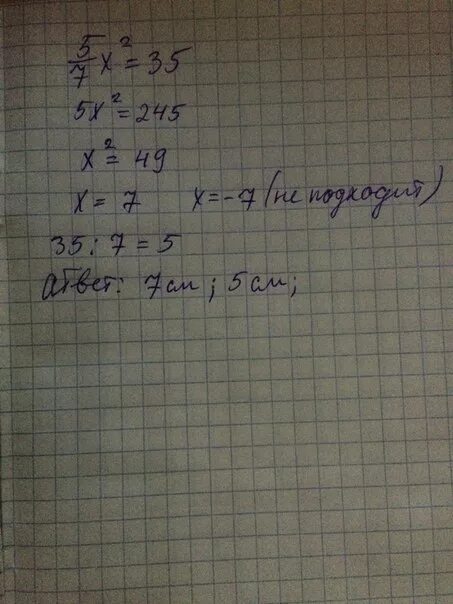 5/7 x² = 35
5x² = 245
x² = 49
x = 7 x = -7 (не подходит)
35 : 7 = 5
Ответ: 7 см ; 5 см ;